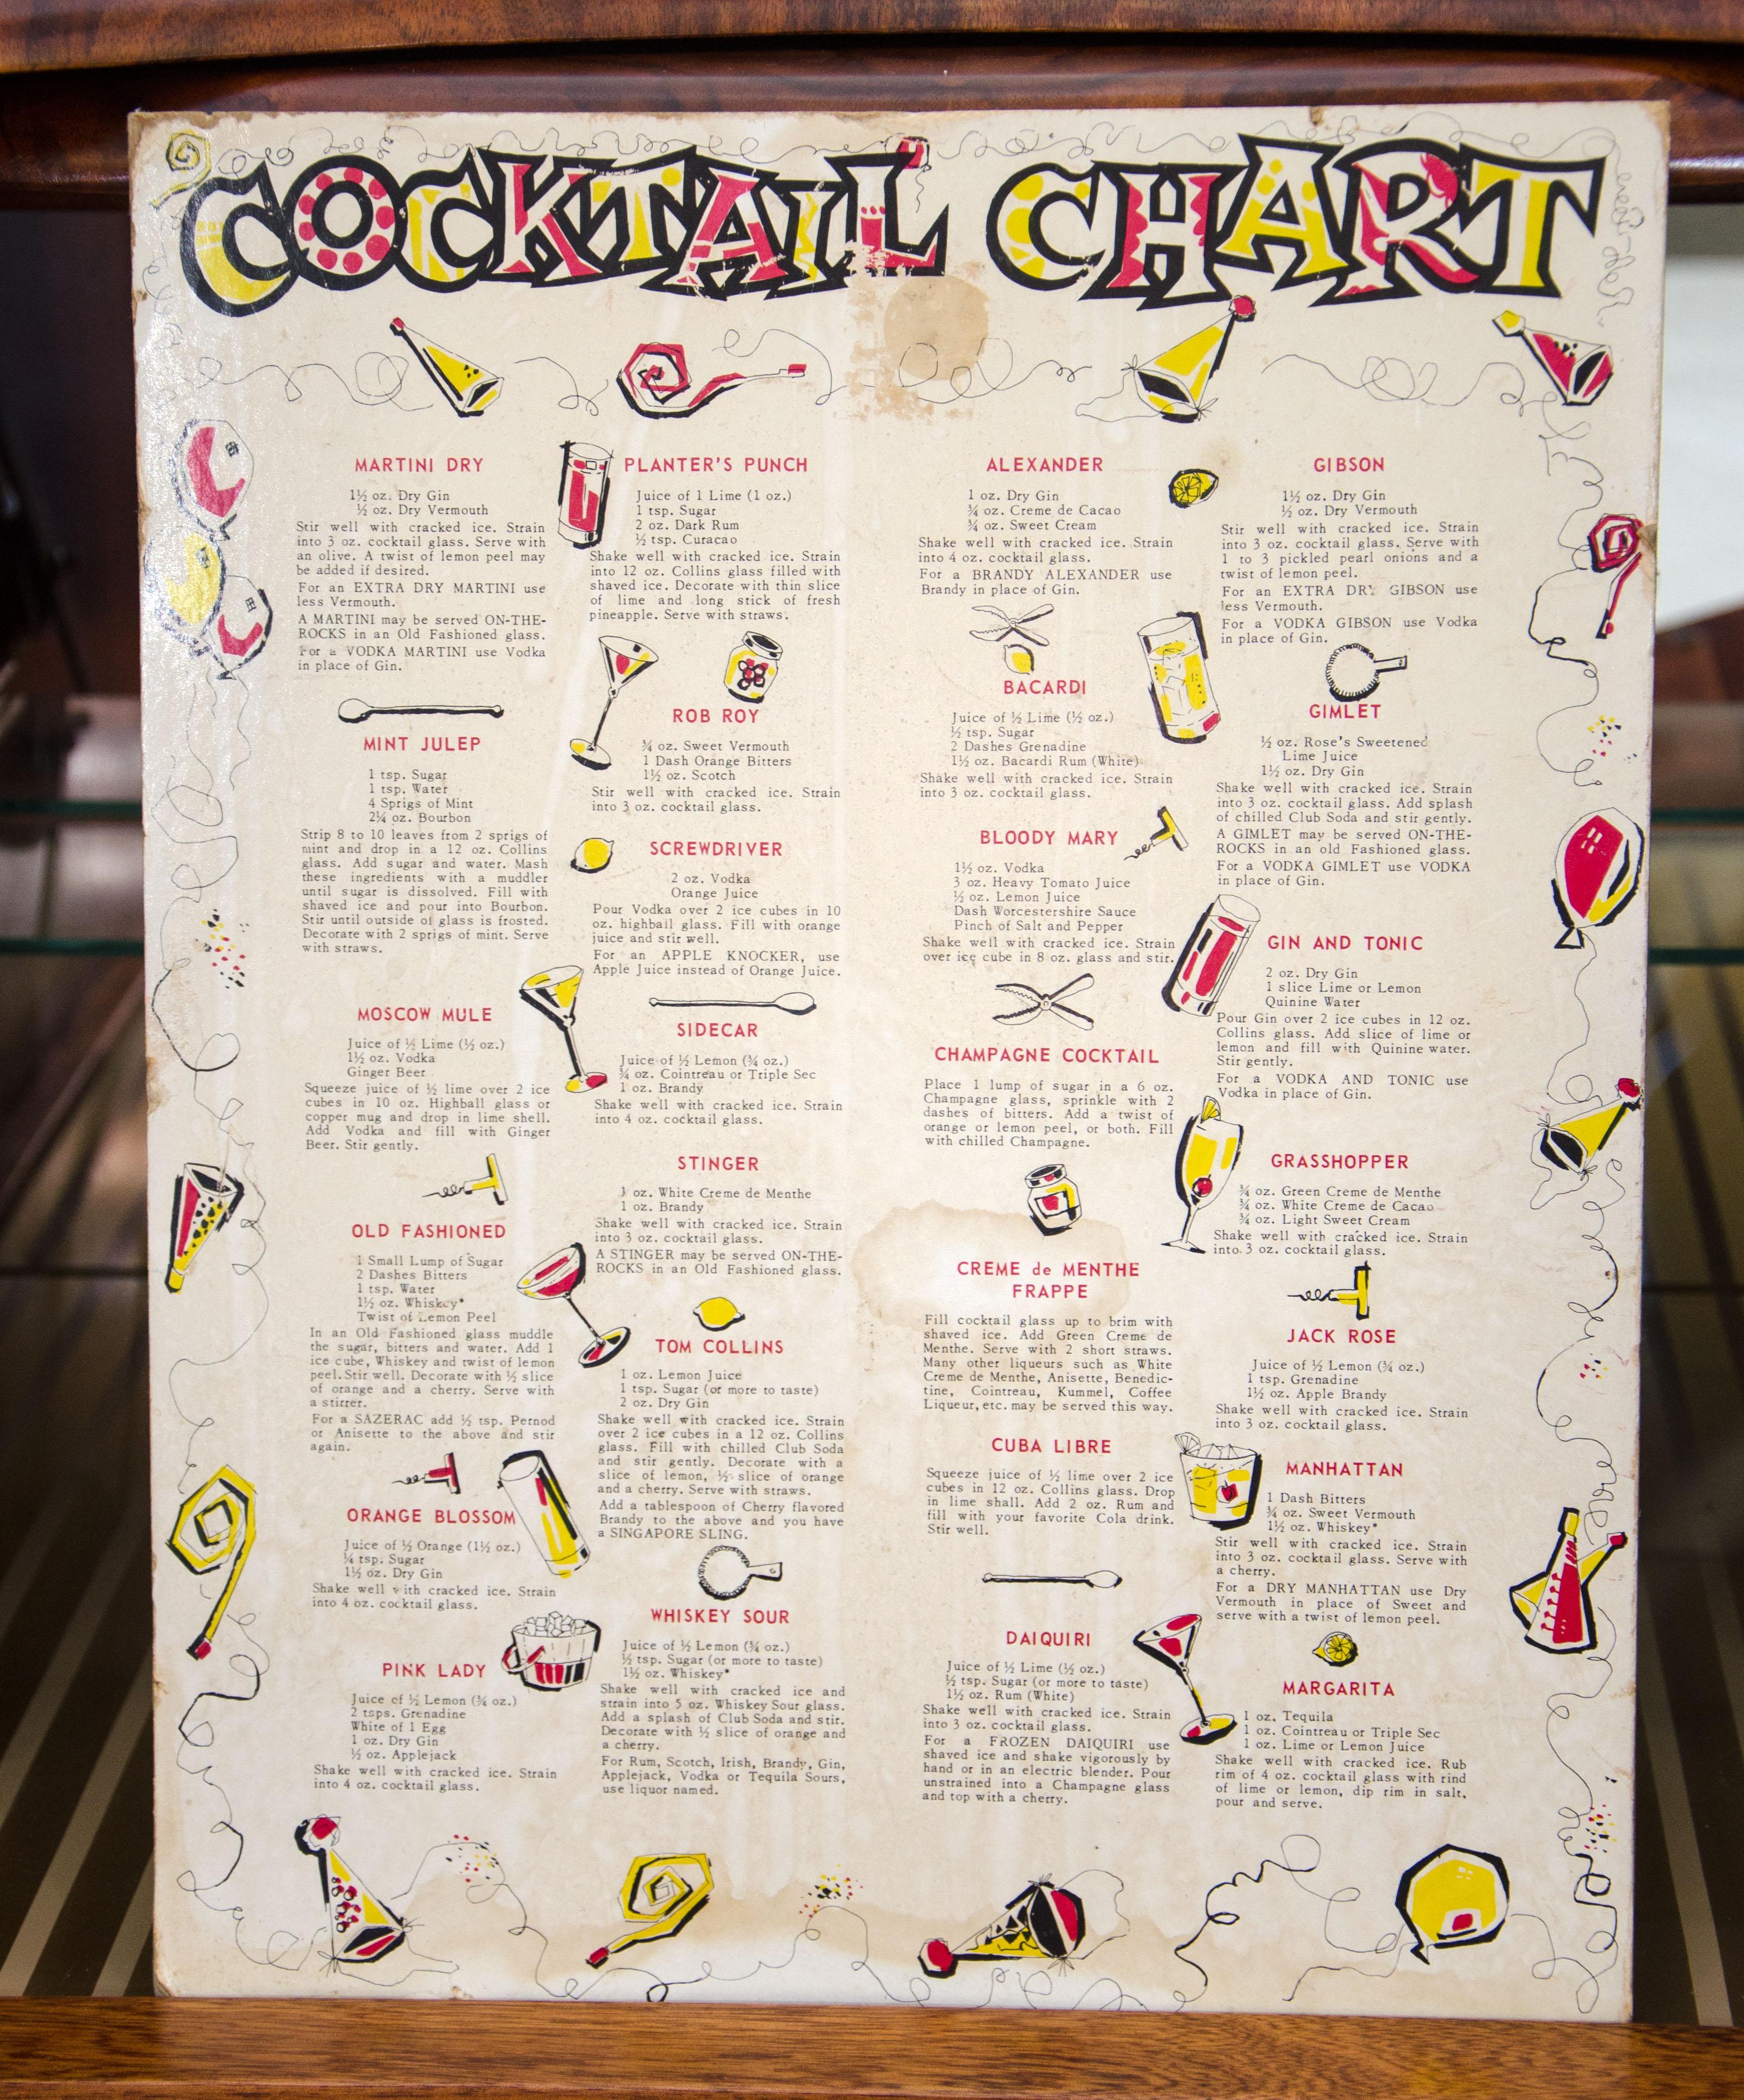 COCKTAIL CHART
MARTINI DRY
1½ oz. Dry Gin
½ oz. Dry Vermouth
Stir well with cracked ice. Strain
into 3 oz. cocktail glass. Serve with
an olive. A twist of lemon peel may
be added if desired.
For an EXTRA DRY MARTINI use
less Vermouth.
A MARTINI may be served ON-THE-
ROCKS in an Old Fashioned glass.
For a VODKA MARTINI use Vodka
in place of Gin.
MINT JULEP
1 tsp. Sugar
1 tsp. Water
4 Sprigs of Mint
2¼ oz. Bourbon
Strip 8 to 10 leaves from 2 sprigs of
mint and drop in a 12 oz. Collins
glass. Add sugar and water. Mash
these ingredients with a muddler
until sugar is dissolved. Fill with
shaved ice and pour into Bourbon.
Stir until outside of glass is frosted.
Decorate with 2 sprigs of mint. Serve
with straws.
MOSCOW MULE
Juice of ½ Lime (½ oz.)
1½ oz. Vodka
Ginger Beer
Squeeze juice of ½ lime over 2 ice
cubes in 10 oz. Highball glass or
copper mug and drop in lime shell.
Add Vodka and fill with Ginger
Beer. Stir gently.
OLD FASHIONED
1 Small Lump of Sugar
2 Dashes Bitters
1 tsp. Water
1½ oz. Whiskey*
Twist of Lemon Peel
In an Old Fashioned glass muddle
the sugar, bitters and water. Add 1
ice cube, Whiskey and twist of lemon
peel. Stir well. Decorate with ½ slice
of orange and a cherry. Serve with
a stirrer.
For a SAZERAC add ½ tsp. Pernod
or Anisette to the above and stir
again.
ORANGE BLOSSOM
Juice of ½ Orange (1½ oz.)
¼ tsp. Sugar
1½ oz. Dry Gin
Shake well with cracked ice. Strain
into 4 oz. cocktail glass.
PINK LADY
Juice of ½ Lemon (¾ oz.)
2 tsps. Grenadine
White of 1 Egg
1 oz. Dry Gin
½ oz. Applejack
Shake well with cracked ice. Strain
into 4 oz. cocktail glass.
PLANTER'S PUNCH
Juice of 1 Lime (1 oz.)
1 tsp. Sugar
2 oz. Dark Rum
½ tsp. Curacao
Shake well with cracked ice. Strain
into 12 oz. Collins glass filled with
shaved ice. Decorate with thin slice
of lime and long stick of fresh
pineapple. Serve with straws.
ROB ROY
¾ oz. Sweet Vermouth
1 Dash Orange Bitters
1½ oz. Scotch
Stir well with cracked ice. Strain
into 3 oz. cocktail glass.
SCREWDRIVER
2 oz. Vodka
Orange Juice
Pour Vodka over 2 ice cubes in 10
oz. highball glass. Fill with orange
juice and stir well.
For an APPLE KNOCKER, use
Apple Juice instead of Orange Juice.
SIDECAR
Juice of ½ Lemon (¾ oz.)
¾ oz. Cointreau or Triple Sec
1 oz. Brandy
Shake well with cracked ice. Strain
into 4 oz. cocktail glass.
STINGER
1 oz. White Creme de Menthe
1 oz. Brandy
Shake well with cracked ice. Strain
into 3 oz. cocktail glass.
A STINGER may be served ON-THE-
ROCKS in an Old Fashioned glass.
TOM COLLINS
1 oz. Lemon Juice
1 tsp. Sugar (or more to taste)
2 oz. Dry Gin
Shake well with cracked ice. Strain
over 2 ice cubes in a 12 oz. Collins
glass. Fill with chilled Club Soda
and stir gently. Decorate with a
slice of lemon, ½ slice of orange
and a cherry. Serve with straws.
Add a tablespoon of Cherry flavored
Brandy to the above and you have
a SINGAPORE SLING.
WHISKEY SOUR
Juice of ½ Lemon (¾ oz.)
½ tsp. Sugar (or more to taste)
1½ oz. Whiskey*
Shake well with cracked ice and
strain into 5 oz. Whiskey Sour glass.
Add a splash of Club Soda and stir.
Decorate with ½ slice of orange and
a cherry.
For Rum, Scotch, Irish, Brandy, Gin,
Applejack, Vodka or Tequila Sours,
use liquor named.
ALEXANDER
1 oz. Dry Gin
¾ oz. Creme de Cacao
¾ oz. Sweet Cream
Shake well with cracked ice. Strain
into 4 oz. cocktail glass.
For a BRANDY ALEXANDER use
Brandy in place of Gin.
BACARDI
Juice of ½ Lime (½ oz.)
½ tsp. Sugar
2 Dashes Grenadine
1½ oz. Bacardi Rum (White)
Shake well with cracked ice. Strain
into 3 oz. cocktail glass.
BLOODY MARY
1½ oz. Vodka
3 oz. Heavy Tomato Juice
½ oz. Lemon Juice
Dash Worcestershire Sauce
Pinch of Salt and Pepper
Shake well with cracked ice. Strain
over ice cube in 8 oz. glass and stir.
CHAMPAGNE COCKTAIL
Place 1 lump of sugar in a 6 oz.
Champagne glass, sprinkle with 2
dashes of bitters. Add a twist of
orange or lemon peel, or both. Fill
with chilled Champagne.
CREME de MENTHE
FRAPPE
Fill cocktail glass up to brim with
shaved ice. Add Green Creme de
Menthe. Serve with 2 short straws.
Many other liqueurs such as White
Creme de Menthe, Anisette, Benedic-
tine, Cointreau, Kummel, Coffee
Liqueur, etc. may be served this way.
CUBA LIBRE
Squeeze juice of ½ lime over 2 ice
cubes in 12 oz. Collins glass. Drop
in lime shall. Add 2 oz. Rum and
fill with your favorite Cola drink.
Stir well.
DAIQUIRI
Juice of ½ Lime (½ oz.)
½ tsp. Sugar (or more to taste)
1½ oz. Rum (White)
Shake well with cracked ice. Strain
into 3 oz. cocktail glass.
For a FROZEN DAIQUIRI use
shaved ice and shake vigorously by
hand or in an electric blender. Pour
unstrained into a Champagne glass
and top with a cherry.
GIBSON
1½ oz. Dry Gin
½ oz. Dry Vermouth
Stir well with cracked ice. Strain
into 3 oz. cocktail glass. Serve with
1 to 3 pickled pearl onions and a
twist of lemon peel.
For an EXTRA DRY GIBSON use
less Vermouth.
For a VODKA GIBSON use Vodka
in place of Gin.
GIMLET
½ oz. Rose's Sweetened
Lime Juice
1½ oz. Dry Gin
Shake well with cracked ice. Strain
into 3 oz. cocktail glass. Add splash
of chilled Club Soda and stir gently.
A GIMLET may be served ON-THE-
ROCKS in an old Fashioned glass.
For a VODKA GIMLET use VODKA
in place of Gin.
GIN AND TONIC
2 oz. Dry Gin
1 slice Lime or Lemon
Quinine Water
Pour Gin over 2 ice cubes in 12 oz.
Collins glass. Add slice of lime or
lemon and fill with Quinine water.
Stir gently.
For a VODKA AND TONIC use
Vodka in place of Gin.
GRASSHOPPER
¾ oz. Green Creme de Menthe
¾ oz. White Creme de Cacao
¾ oz. Light Sweet Cream
Shake well with cracked ice. Strain
into 3 oz. cocktail glass.
JACK ROSE
Juice of ½ Lemon (¾ oz.)
1 tsp. Grenadine
1½ oz. Apple Brandy
Shake well with cracked ice. Strain
into 3 oz. cocktail glass.
MANHATTAN
1 Dash Bitters
¾ oz. Sweet Vermouth
1½ oz. Whiskey*
Stir well with cracked ice. Strain
into 3 oz. cocktail glass. Serve with
a cherry.
For a DRY MANHATTAN use Dry
Vermouth in place of Sweet and
serve with a twist of lemon peel.
MARGARITA
1 oz. Tequila
1 oz. Cointreau or Triple Sec
1 oz. Lime or Lemon Juice
Shake well with cracked ice. Rub
rim of 4 oz. cocktail glass with rind
of lime or lemon, dip rim in salt,
pour and serve.